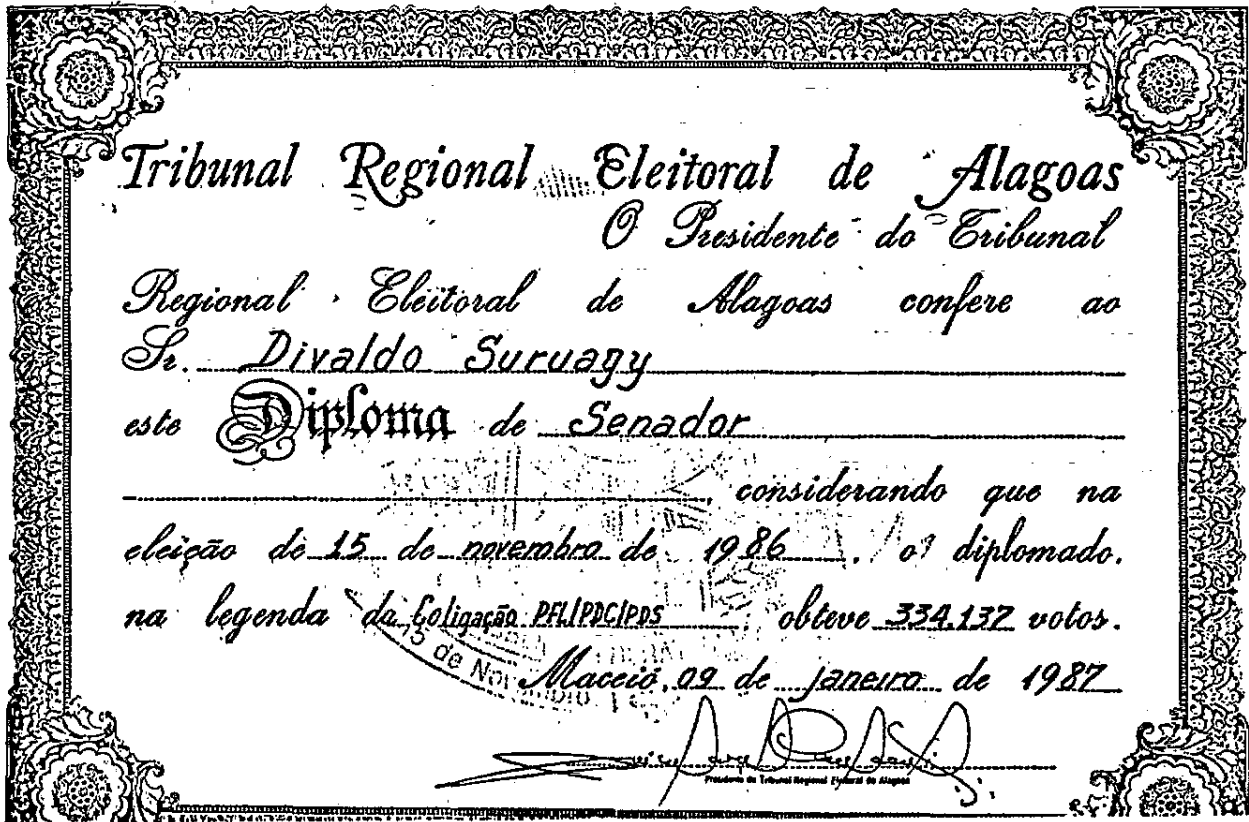 Tribunal Regional Eleitoral de Alagoas
O Presidente do Tribunal
Regional Eleitoral de Alagoas confere ao
Sr. Divaldo Suruagy
este Diploma de Senador
, considerando que na
eleição de 15 de novembro de 1986, o diplomado,
na legenda da Coligação PFL/PDC/PDS obteve 334.137 votos.
15 de
Maceió, 09 de janeiro de 1987
Presidente do Tribunal Regional Eleitoral de Alagoas